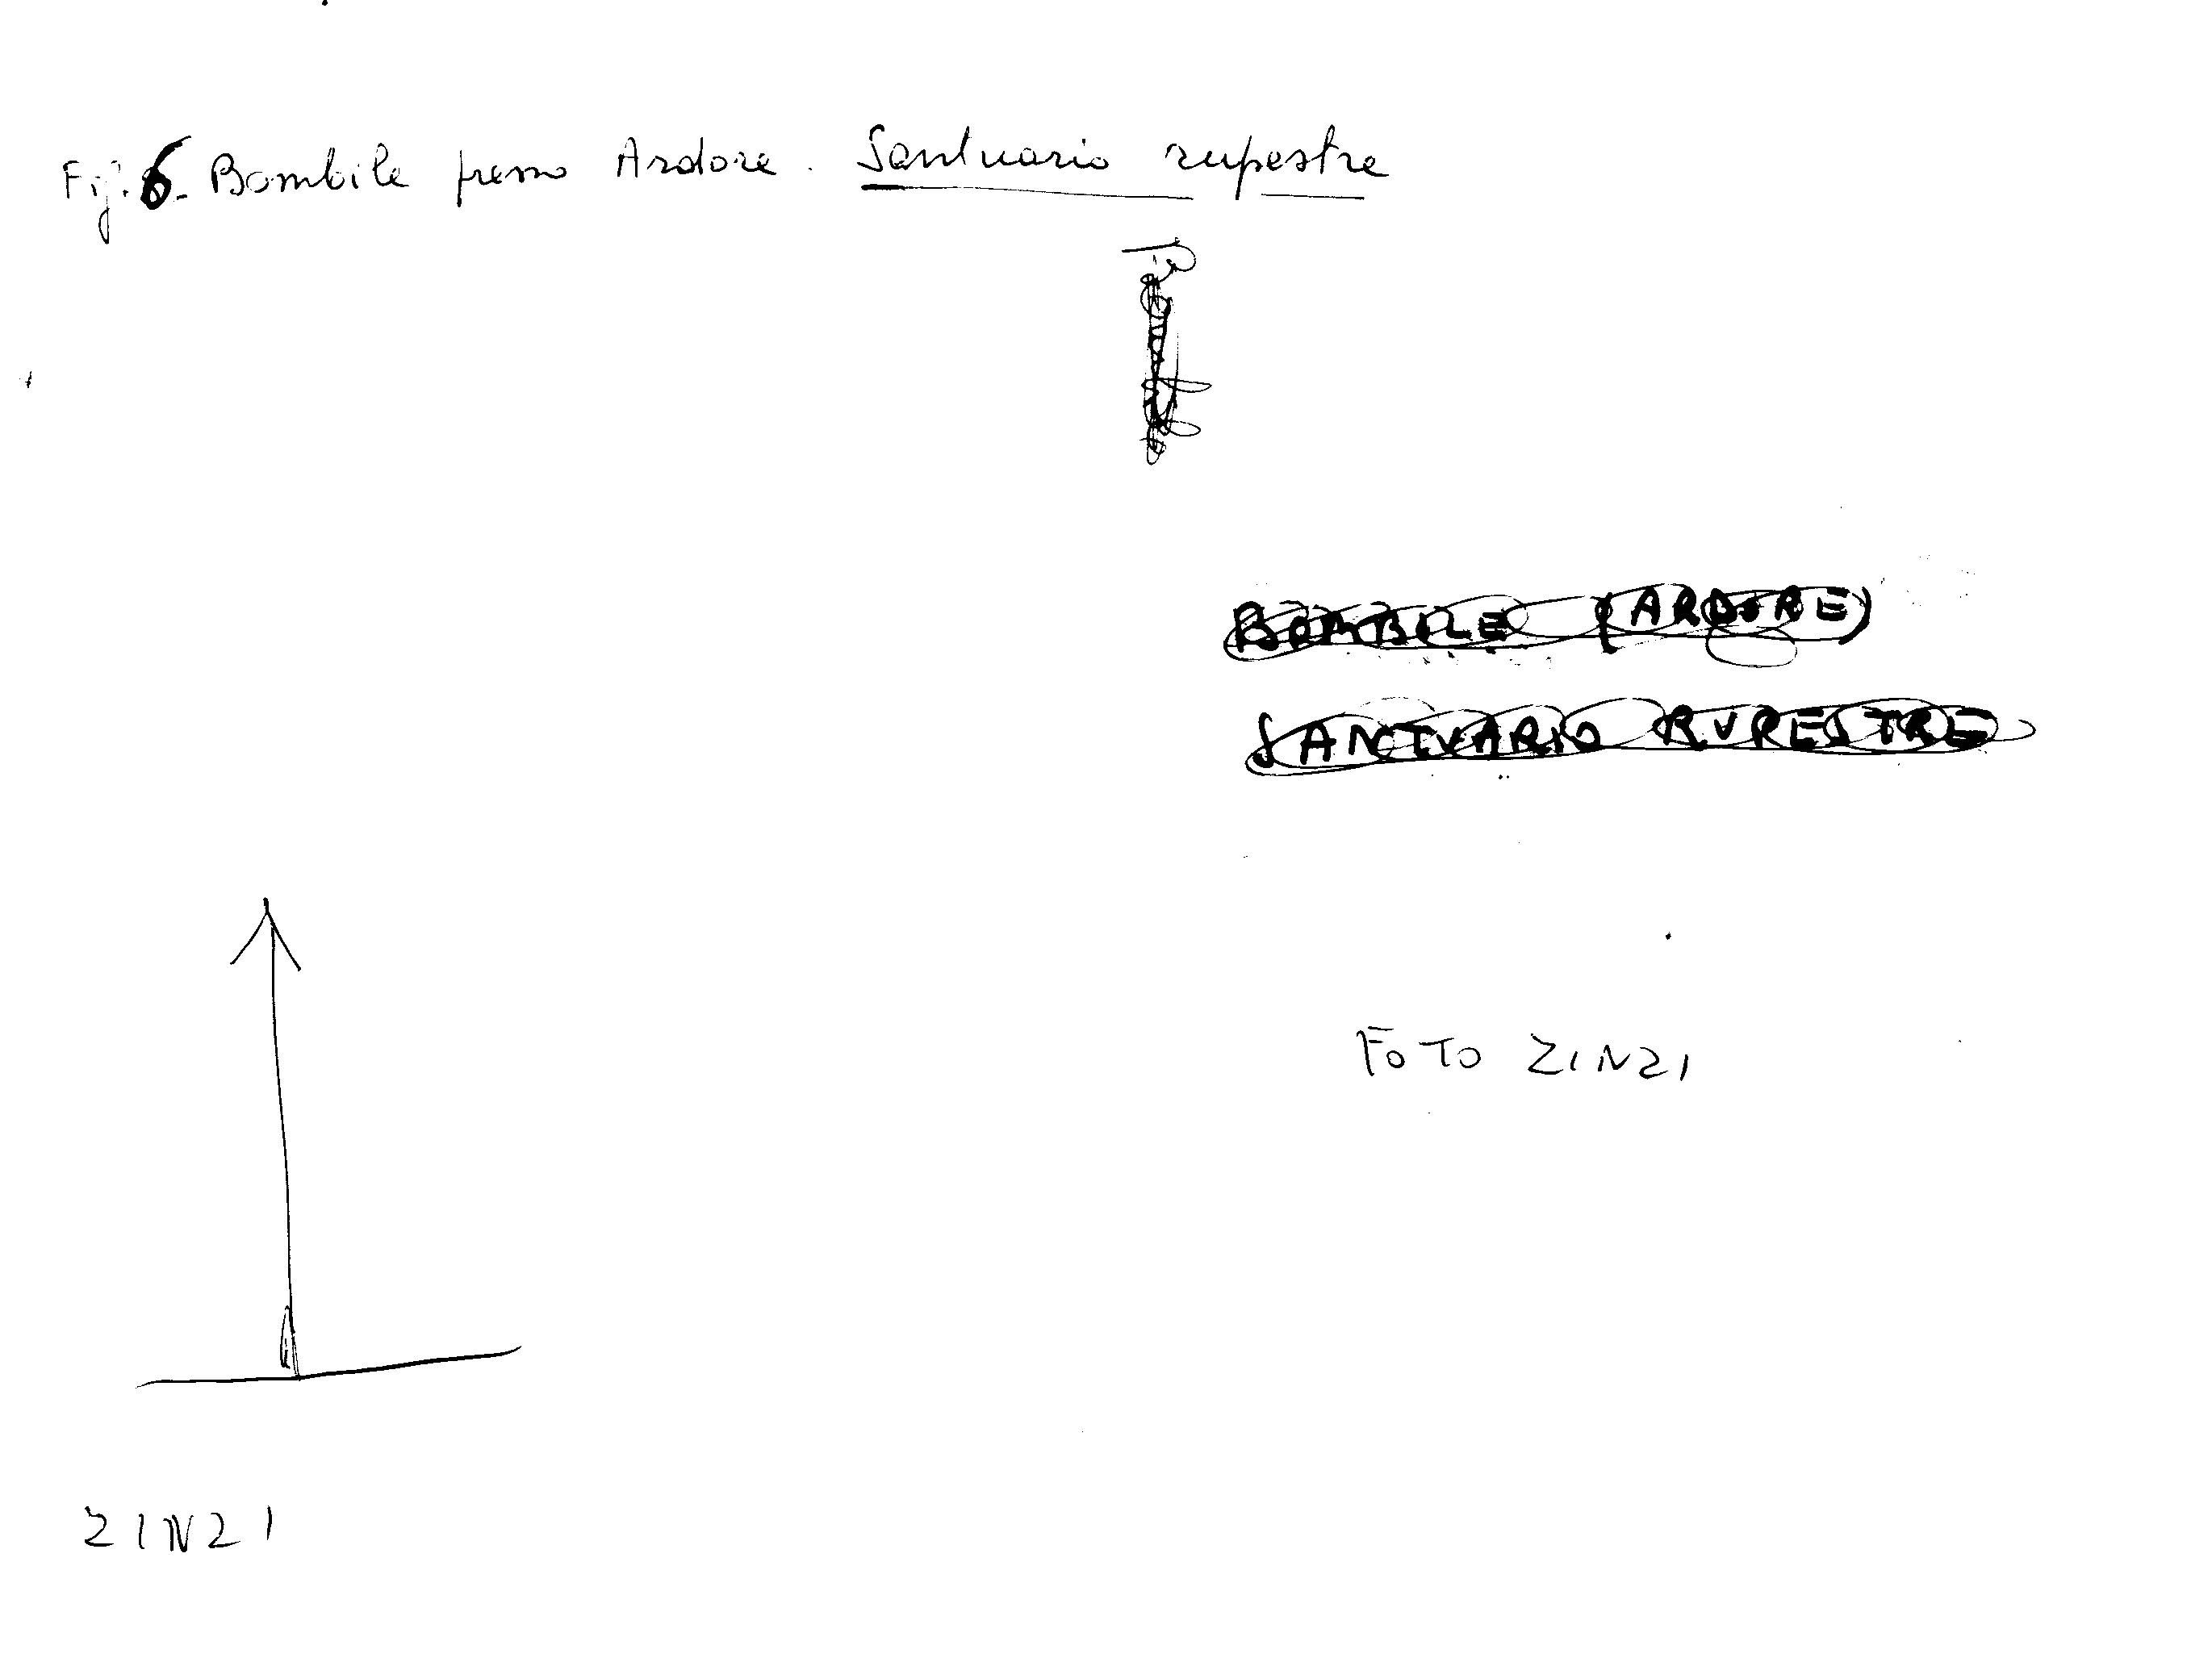 Fig. 6. Bombile presso Ardore. Santuario rupestre
BOMBILE (ARDORE)
SANTVARIO RVPESTRE
FOTO ZINZI
ZINZI